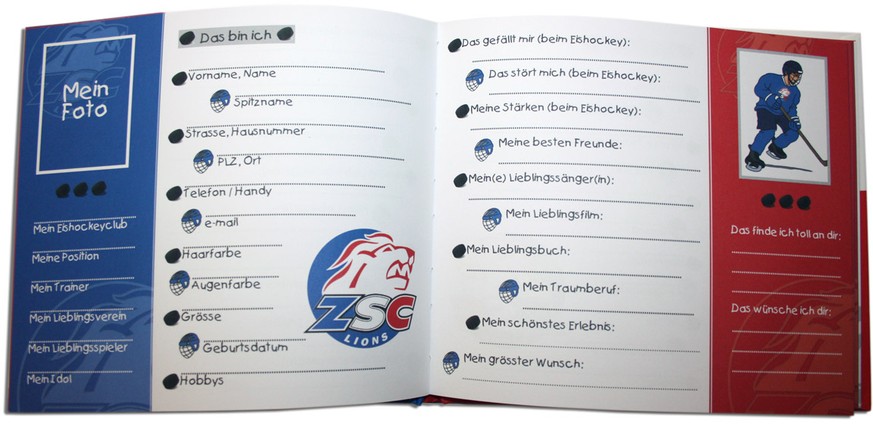 Mein
Foto
Mein Eishockeyclub
Meine Position
Mein Trainer
Mein Lieblingsverein
Mein Lieblingsspieler
Mein Idol
Das bin ich
Vorname, Name
Spitzname
Strasse, Hausnummer
PLZ, Ort
Telefon / Handy
e-mail
Haarfarbe
Augenfarbe
Grösse
Geburtsdatum
Hobbys
ZSC
LIONS
Das gefällt mir (beim Eishockey):
Das stört mich (beim Eishockey):
Meine Stärken (beim Eishockey):
Meine besten Freunde:
Mein(e) Lieblingssänger(in):
Mein Lieblingsfilm:
Mein Lieblingsbuch:
Mein Traumberuf:
Mein schönstes Erlebnis:
Mein grösster Wunsch:
Das finde ich toll an dir:
Das wünsche ich dir: